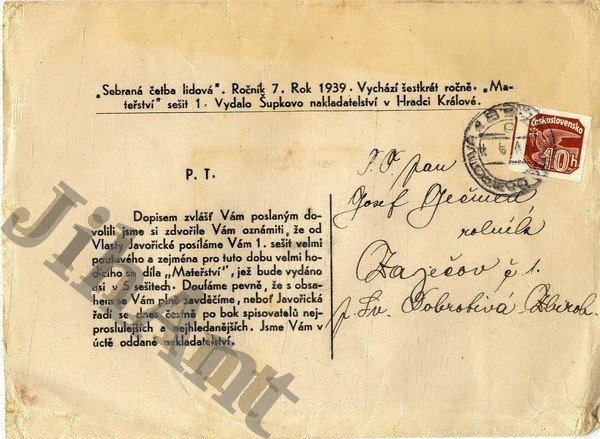 „Sebraná četba lidová". Ročník 7. Rok 1939. Vychází šestkrát ročně. „Ma-
teřství" sešit 1. Vydalo Šupkovo nakladatelství v Hradci Králové.
Československo
10h
P. T.
Dopisem zvlášť Vám poslaným do-
volili jsme si zdvořile Vám oznámiti, že od
Vlasty Javořické posíláme Vám 1. sešit velmi
poutavého a zejména pro tuto dobu velmi ho-
dícího se díla „Mateřství", jež bude vydáno
asi v 5 sešitech. Doufáme pevně, že s obsa-
hem se Vám plně zavděčíme, neboť Javořická
řadí se dnes čestně po bok spisovatelů nej-
proslulejších a nejhledanějších. Jsme Vám v
úctě oddané nakladatelství.
P. T. pan
Josef Ječmen
rolník
Zaječov č 1.
p. Sv. Dobrotivá Zbiroh.
JihAmt